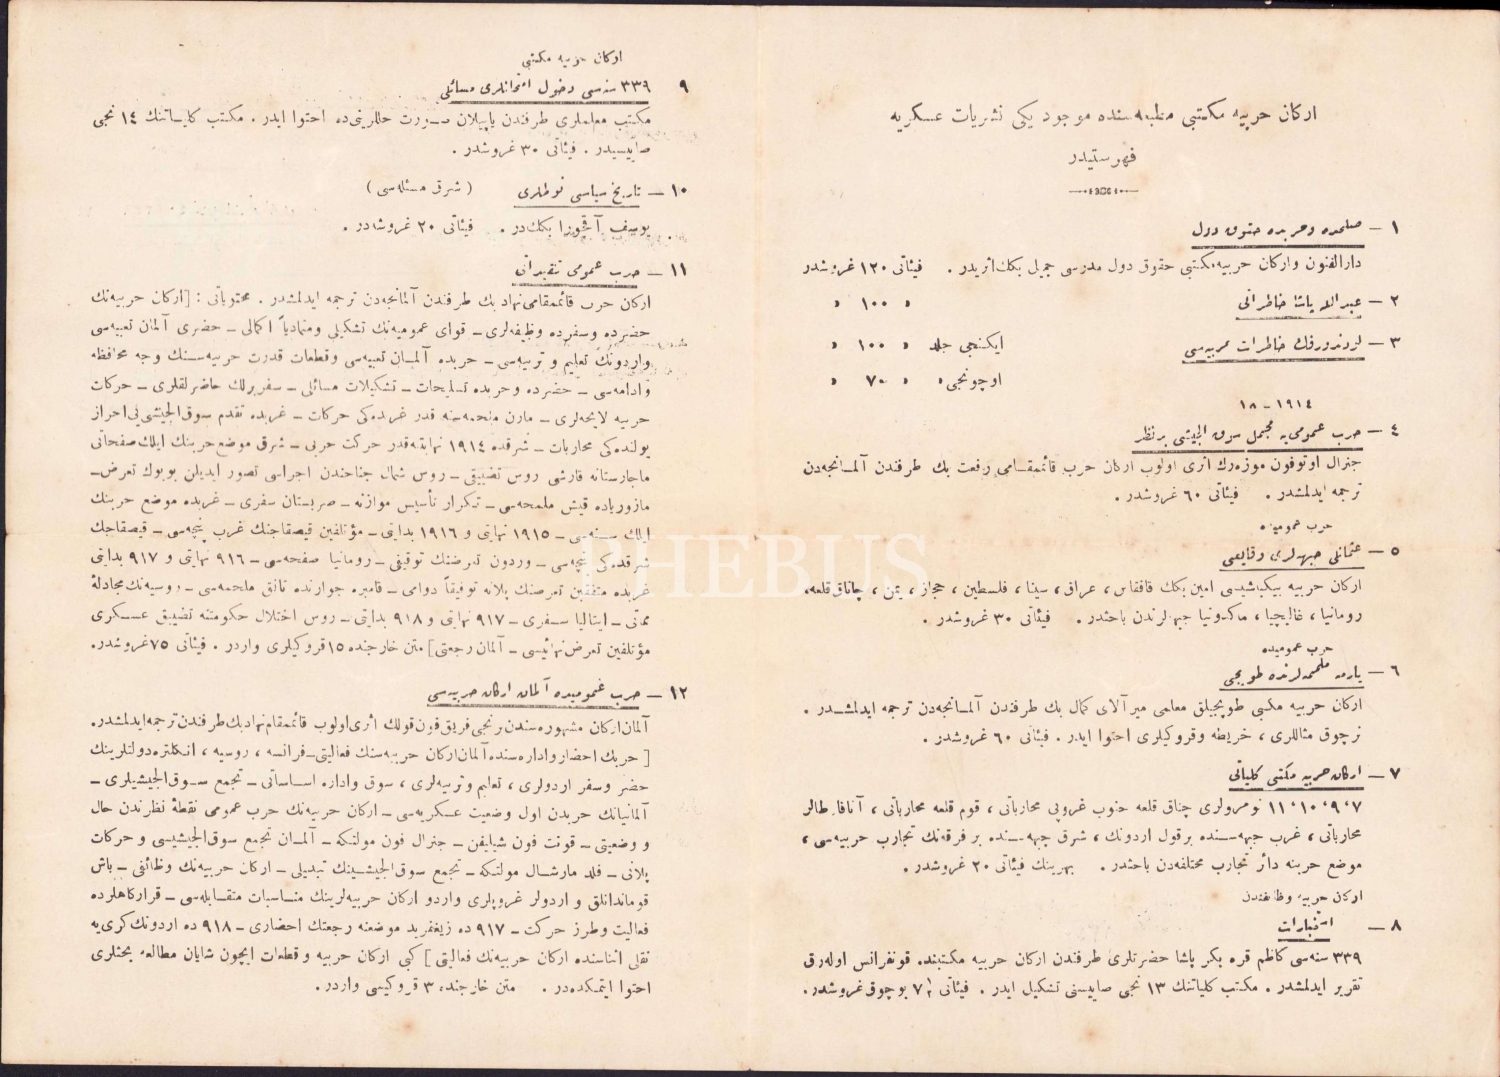 اركان حربيه مكتبى مطبعه‌سنده موجود يكى نشريات عسكريه
فهرستيدر
۱ — صلحده و حربده حقوق دول
دارالفنون واركان حربيه مكتبى حقوق دول مدرسى جميل بكك اثريدر . فيئاتى ۱۲۰ غروشدر
۲ — عبدالله پاشا خاطراتى » ۱۰۰ »
۳ — لودندورفك خاطرات حربيه‌سى ايكنجى جلد » ۱۰۰ »
اوچونجى » » ۷۰ »
۱۹۱٤ - ۱۸
٤ — حرب عمومى‌يه مجمل سوق الجيشى بر نظر
جنرال اوتوفون موزه‌رك اثرى اولوب اركان حرب قائممقامى رفعت بك طرفندن آلمانجه‌دن
ترجمه ايدلمشدر . فيئاتى ٦۰ غروشدر .
حرب عموميده
٥ — عثمانلى جبهه‌لرى وقايعى
اركان حربيه بيكباشيسى امين بكك قافقاس ، عراق ، سينا ، فلسطين ، حجاز ، يمن ، چاناق قلعه،
رومانيا ، غاليچيا ، ماكدونيا جبهه‌لرندن باحثدر . فيئاتى ۳۰ غروشدر .
حرب عموميده
٦ — يارمه ملحمه‌لرنده طوپجى
اركان حربيه مكتبى طوپجيلق معلمى ميرآلاى كمال بك طرفندن آلمانجه‌دن ترجمه ايدلمشدر .
برچوق مثاللرى ، خريطه وقروكيلرى احتوا ايدر . فيئاتى ٦۰ غروشدر .
۷ — اركان حربيه مكتبى كلياتى
۷٬ ۹٬ ۱۰٬ ۱۱ نومرولرى چناق قلعه جنوب غروپى محارباتى ، قوم قلعه محارباتى ، آنافارطالر
محارباتى ، غرب جبهه‌سنده برقول اردونك ، شرق جبهه‌سنده بر فرقه‌نك تجارب حربيه‌سى ،
موضع حربنه دائر تجارب مختلفه‌دن باحثدر . بهرينك فيئاتى ۲۰ غروشدر .
اركان حربيه وظائفندن
۸ — استخبارات
۳۳۹ سنه‌سى كاظم قره بكر پاشا حضرتلرى طرفندن اركان حربيه مكتبنده قونفرانس اوله‌رق
تقرير ايدلمشدر . مكتب كلياتنك ۱۳ نجى صاييسنى تشكيل ايدر . فيئاتى ۷ بوچوق غروشدر .
اركان حربيه مكتبى
۹ ۳۳۹ سنه‌سى دخول امتحانلرى مسائلى
مكتب معلملرى طرفندن ياپيلان صورت حللرينى‌ده احتوا ايدر . مكتب كلياتنك ۱٤ نجى
صاييسيدر . فيئاتى ۳۰ غروشدر .
۱۰ — تاريخ سياسى نوطلرى ( شرق مسئله‌سى )
يوسف آقچورا بككدر . فيئاتى ۲۰ غروشدر .
۱۱ — حرب عمومى تنقيداتى
اركان حرب قائممقامى نهاد بك طرفندن آلمانجه‌دن ترجمه ايدلمشدر . محتوياتى : [اركان حربيه‌نك
حضرده وسفرده وظيفه‌لرى – قواى عموميه‌نك تشكيلى ومتمادياً اكمالى – حضرى آلمان تعبيه‌سى
واردونك تعليم و تربيه‌سى – حربده آلمان تعبيه‌سى وقطعات قدرت حربيه‌سنك وجه محافظه
وادامه‌سى – حضرده وحربده تسليحات – تشكيلات مسائلى – سفربرلك حاضرلقلرى – حركات
حربيه لايحه‌لرى – مارن ملحمه‌سنه قدر غربده‌كى حركات – غربده تقدم سوق‌الجيشى‌يى احراز
يولنده‌كى محاربات – شرقده ۱۹۱٤ نهايتنه‌قدر حركت حربى – شرق موضع حربنك ايلك صفحاتى
ماجارستانه قارشى روس تضييقى – روس شمال جناحندن اجراسى تصور ايديلن بويوك تعرض–
مازورياده قيش ملحمه‌سى – تكرار تأسيس موازنه – صربستان سفرى – غربده موضع حربنك
ايلك سنه‌سى – ۱۹۱٥ نهايتى و ۱۹۱٦ بدايتى – مؤتلفين قيصقاجنك غرب پنچه‌سى – قيصقاجك
شرقده‌كى پنچه‌سى – وردون تعرضنك توقيفى – رومانيا صفحه‌سى – ۹۱٦ نهايتى و ۹۱۷ بدايتى
غربده متفقين تعرضنك پلانه توفيقاً دوامى – قامبره جوارنده تانق ملحمه‌سى – روسيه‌نك مجادلۀ
مماتى – ايتاليا سفرى – ۹۱۷ نهايتى و ۹۱۸ بدايتى – روس اختلال حكومتنه تضييق عسكرى
مؤتلفين تعرض نهائيسى – آلمان رجعتى] متن خارجنده ۱٥ قروكيلرى واردر . فيئاتى ۷٥ غروشدر.
۱۲ — حرب عموميده آلمان اركان حربيه‌سى
آلمان اركان مشهوره‌سندن برنجى فريق فون قولك اثرى اولوب قائممقام نهاد بك طرفندن ترجمه ايدلمشدر.
[ حربك احضار واداره‌سنده آلمان اركان حربيه‌سنك فعاليتى– فرانسه ، روسيه ، انكلتره دولتلرينك
حضر وسفر اردولرى ، تعليم وتربيه‌لرى ، سوق واداره اساساتى – تجمع سوق‌الجيشيلرى –
آلمانيانك حربدن اول وضعيت عسكريه‌سى – اركان حربيه‌نك حرب عمومى نقطۀ نظرندن حال
و وضعيتى – قونت فون شليفن – جنرال فون مولتكه – آلمان تجمع سوق‌الجيشيسى و حركات
پلانى – فلد مارشال مولتكه – تجمع سوق‌الجيشينك تبديلى – اركان حربيه‌نك وظائفى – باش
قومانداناق و اردولر غروپلرى واردو اركان حربيه‌لرينك مناسبات متقابله‌سى – قراركاهلرده
فعاليت وطرز حركت – ۹۱۷ ده زيغفريد موضعنه رجعتك احضارى – ۹۱۸ ده اردونك كرى‌يه
نقلى اثناسنده اركان حربيه‌نك فعاليتى ] كبى اركان حربيه و قطعات ايچون شايان مطالعه بحثلرى
احتوا ايتمكده‌در . متن خارجنده ۳ قروكيسى واردر.
PHEBUS